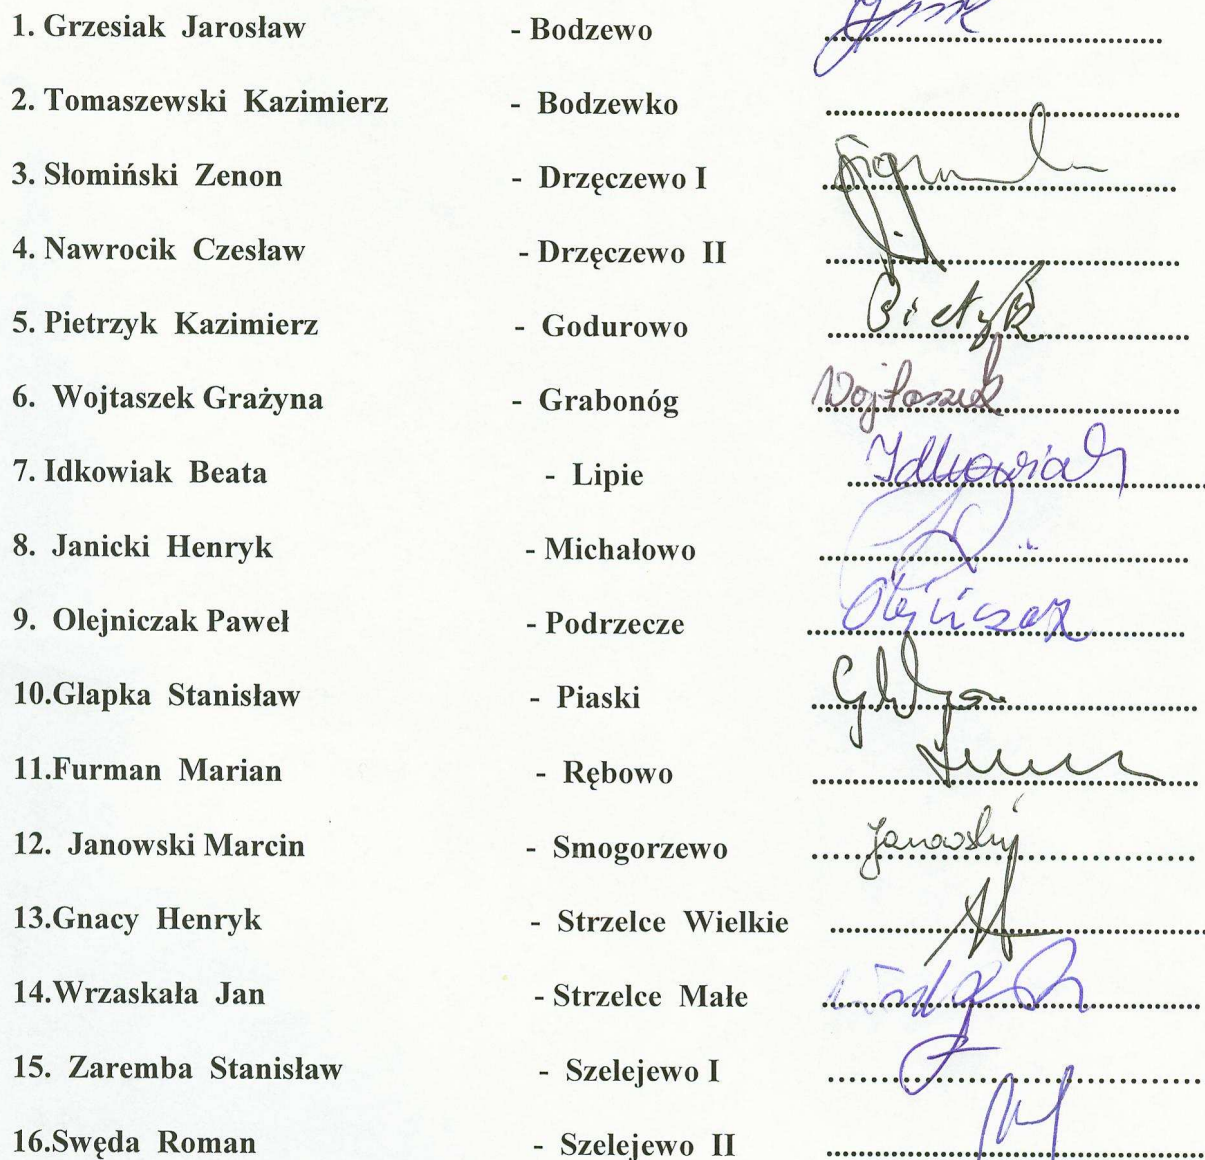 1. Grzesiak Jarosław - Bodzewo ........................................
2. Tomaszewski Kazimierz - Bodzewko ........................................
3. Słomiński Zenon - Drzęczewo I ........................................
4. Nawrocik Czesław - Drzęczewo II ........................................
5. Pietrzyk Kazimierz - Godurowo ........................................
6. Wojtaszek Grażyna - Grabonóg Wojtaszek
7. Idkowiak Beata - Lipie Idkowiak
8. Janicki Henryk - Michałowo ........................................
9. Olejniczak Paweł - Podrzecze Olejniczak
10.Glapka Stanisław - Piaski ........................................
11.Furman Marian - Rębowo ........................................
12. Janowski Marcin - Smogorzewo Janowski
13.Gnacy Henryk - Strzelce Wielkie ........................................
14.Wrzaskała Jan - Strzelce Małe ........................................
15. Zaremba Stanisław - Szelejewo I ........................................
16.Swęda Roman - Szelejewo II ........................................